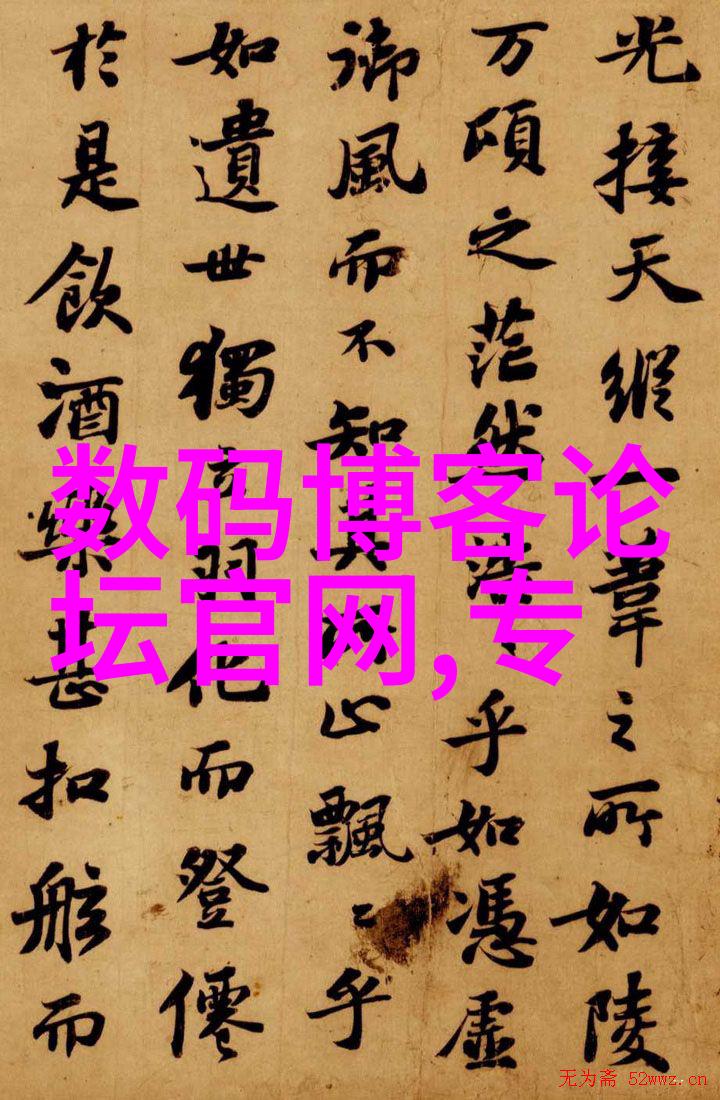 光接天縱一葦之所如陵
万頃之茫然浩〻乎如憑虛
御風而不知其所止飄〻乎
如遺世獨立羽化而登僊
於是飲酒樂甚扣舷而
数码博客论
坛官网,专
无为斋 52wwz.cn